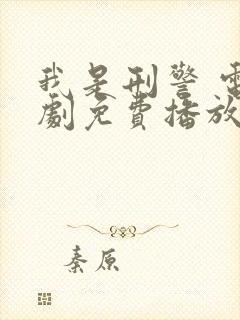 我是刑警 電
劇免費播放
秦原